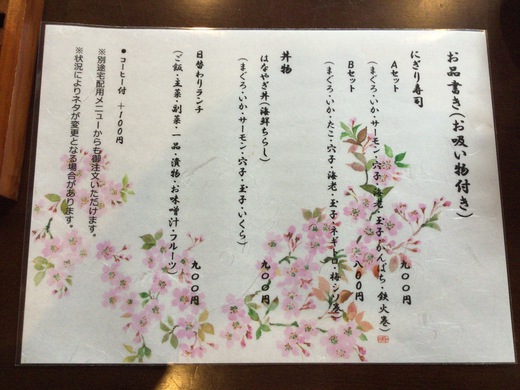 お品書き(お吸い物付き)
にぎり寿司
Aセット 九〇〇円
(まぐろ・いか・サーモン・穴子・海老・玉子・かんぱち・鉄火巻)
Bセット 八〇〇円
(まぐろ・いか・たこ・穴子・海老・玉子・ネギトロ・梅シソ巻)
丼物
はなやぎ丼(海鮮ちらし) 九〇〇円
(まぐろ・いか・サーモン・穴子・玉子・いくら)
日替わりランチ 九〇〇円
(ご飯・主菜・副菜・一品・漬物・お味噌汁・フルーツ)
●コーヒー付 +100円
※別途宅配用メニューからも御注文いただけます。
※状況によりネタが変更となる場合があります。